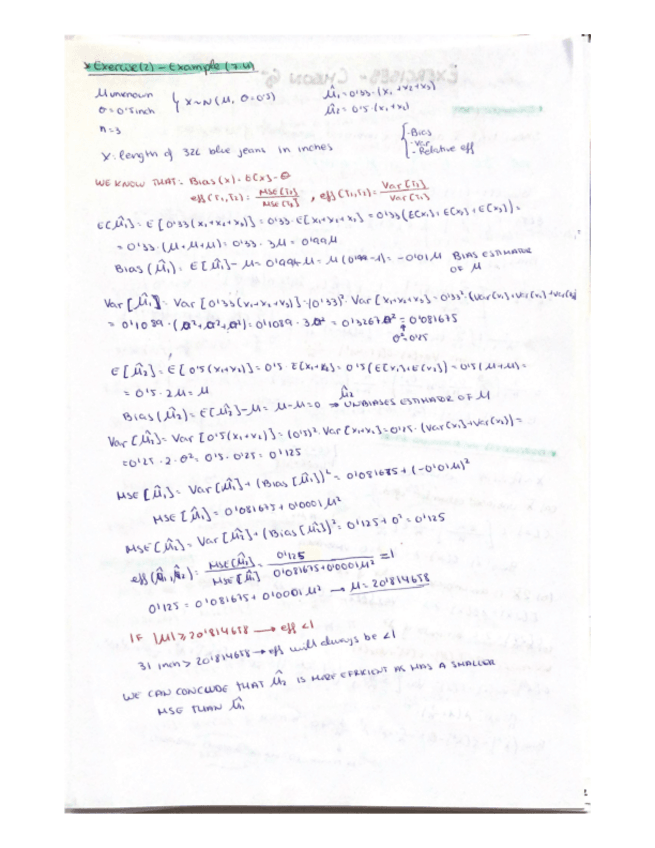 * Exercise(2) - Example (7.4)
μ unknown
σ = 0'5 inch } X ~ N(μ, σ=0'5)
n=3
μ̂₁ = 0'33·(x₁+x₂+x₃)
μ̂₂ = 0'5·(x₁+x₂)
X: length of 32L blue jeans in inches
- Bias
- Var
- Relative eff
WE KNOW THAT: Bias(x) = E[x] - θ
eff(T₁,T₂) = MSE[T₂]/MSE[T₁] , eff(T₁,T₂) = Var[T₂]/Var[T₁]
E[μ̂₁] = E[0'33(x₁+x₂+x₃)] = 0'33·E[x₁+x₂+x₃] = 0'33(E[x₁]+E[x₂]+E[x₃]) =
= 0'33·(μ+μ+μ) = 0'33·3μ = 0'99μ
Bias(μ̂₁) = E[μ̂₁] - μ = 0'99μ - μ = μ(0'99-1) = -0'01μ BIAS ESTIMATOR
OF μ
Var[μ̂₁] = Var[0'33(x₁+x₂+x₃)] = (0'33)²·Var[x₁+x₂+x₃] = 0'33²·(Var[x₁]+Var[x₂]+Var[x₃])
= 0'1089·(σ²+σ²+σ²) = 0'1089·3σ² = 0'3267σ² = 0'081675
σ²=0'25
E[μ̂₂] = E[0'5(x₁+x₂)] = 0'5·E[x₁+x₂] = 0'5(E[x₁]+E[x₂]) = 0'5(μ+μ) =
= 0'5·2μ = μ
Bias(μ̂₂) = E[μ̂₂] - μ = μ-μ = 0 → μ̂₂ UNBIASES ESTIMATOR OF μ
Var[μ̂₂] = Var[0'5(x₁+x₂)] = (0'5)²·Var[x₁+x₂] = 0'25·(Var[x₁]+Var[x₂]) =
= 0'25·2·σ² = 0'5·0'25 = 0'125
MSE[μ̂₁] = Var[μ̂₁] + (Bias[μ̂₁])² = 0'081675 + (-0'01μ)²
MSE[μ̂₁] = 0'081675 + 0'0001μ²
MSE[μ̂₂] = Var[μ̂₂] + (Bias[μ̂₂])² = 0'125 + 0² = 0'125
eff(μ̂₁,μ̂₂) = MSE[μ̂₂]/MSE[μ̂₁] = 0'125/0'081675+0'0001μ² = 1
0'125 = 0'081675 + 0'0001μ² → μ = 20'814658
IF |μ| ≥ 20'814658 → eff < 1
31 inch > 20'814658 → eff will always be < 1
WE CAN CONCLUDE THAT μ̂₂ IS MORE EFFICIENT AS HAS A SMALLER
MSE THAN μ̂₁